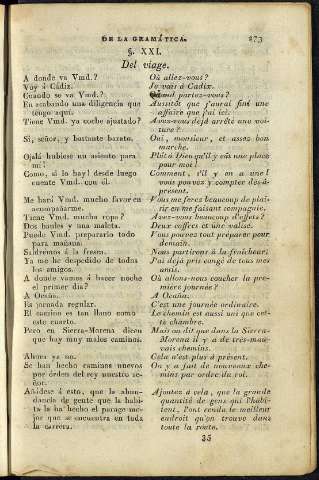 DE LA GRAMÁTICA. 273
§. XXI.
Del viage.
A donde va Vmd.?
Voy á Cádiz.
Cuando se va Vmd.?
En acabando una diligencia que
tengo aquí.
Tiene Vmd. ya coche ajustado?
Si, señor, y bastante barato.
Ojalá hubiese un asiento para
mí!
Como, si lo hay! desde luego
cuente Vmd. con él.
Me hará Vmd. mucho favor en
acompañarme.
Tiene Vmd. mucha ropa?
Dos baules y una maleta.
Puede Vmd. prepararlo todo
para mañana.
Saldrémos á la fresca.
Ya me he despedido de todos
los amigos.
A donde vamos á hacer noche
el primer dia?
A Ocaña.
Es jornada regular.
El camino es tan llano como
este cuarto.
Pero en Sierra-Morena dicen
que hay muy malos caminos.
Ahora ya no.
Se han hecho caminos nuevos
por órden del rey nuestro se-
ñor.
Añádese á esto, que la abun-
dancia de gente que la habi-
ta la ha hecho el parage me-
jor que se encuentra en toda
la carrera.
Où allez-vous?
Je vais à Cadix.
Quand partez-vous?
Aussitôt que j'aurai fini une
affaire que j'ai ici.
Avez-vous déjà arrêté une voi-
ture?
Oui, monsieur, et assez bon
marché.
Plût à Dieu qu'il y eût une place
pour moi!
Comment, s'il y en a une!
vous pouvez y compter dès-à-
présent.
Vous me ferez beaucoup de plai-
sir en me faisant compagnie.
Avez-vous beaucoup d'effets?
Deux coffres et une valise.
Vous pouvez tout préparer pour
demain.
Nous partirons à la fraîcheur.
J'ai déjà pris congé de tous mes
amis.
Où allons-nous coucher la pre-
mière journée?
A Ocaña.
C'est une journée ordinaire.
Le chemin est aussi uni que cet-
te chambre.
Mais on dit que dans la Sierra-
Morena il y a de très-mau-
vais chemins.
Cela n'est plus à présent.
On y a fait de nouveaux che-
mins par ordre du roi.
Ajoutez à cela, que la grande
quantité de gens qui l'habi-
tent, l'ont rendu le meilleur
endroit qu'on trouve dans
toute la route.
35